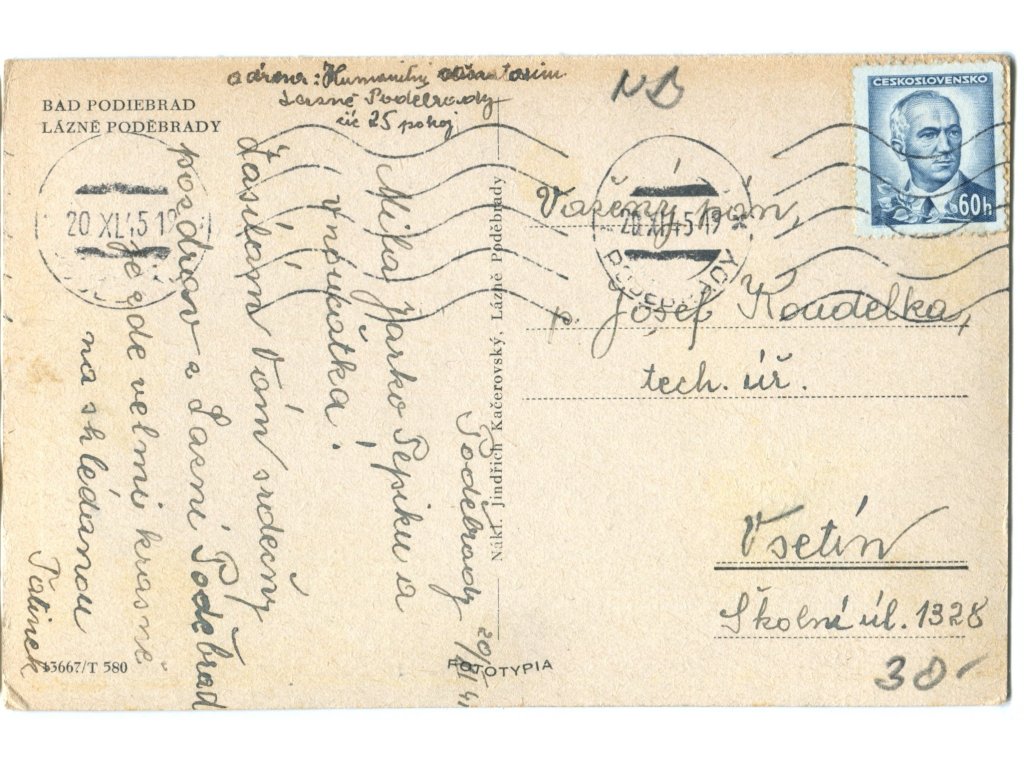 adresa: Humanitný sanatorium
Lázně Poděbrady
čís 25 pokoj
NB
BAD PODIEBRAD
LÁZNĚ PODĚBRADY
ČESKOSLOVENSKO
60h
20 XI.45 19
20 XI.45 19
PODĚBRADY
Poděbrady 20/XI 45
Milá Jarko Pepíku a
vnoučátka!
Zasílám Vám srdečný
pozdrav z Lázní Poděbrad
je zde velmi krásně
na shledanou
Tatínek
Nákl. Jindřich Kačerovský, Lázně Poděbrady
Vážený pán,
p. Josef Koudelka,
tech. úř.
Vsetín
Školní úl. 1328
30-
13667/T 580
FOTOTYPIA